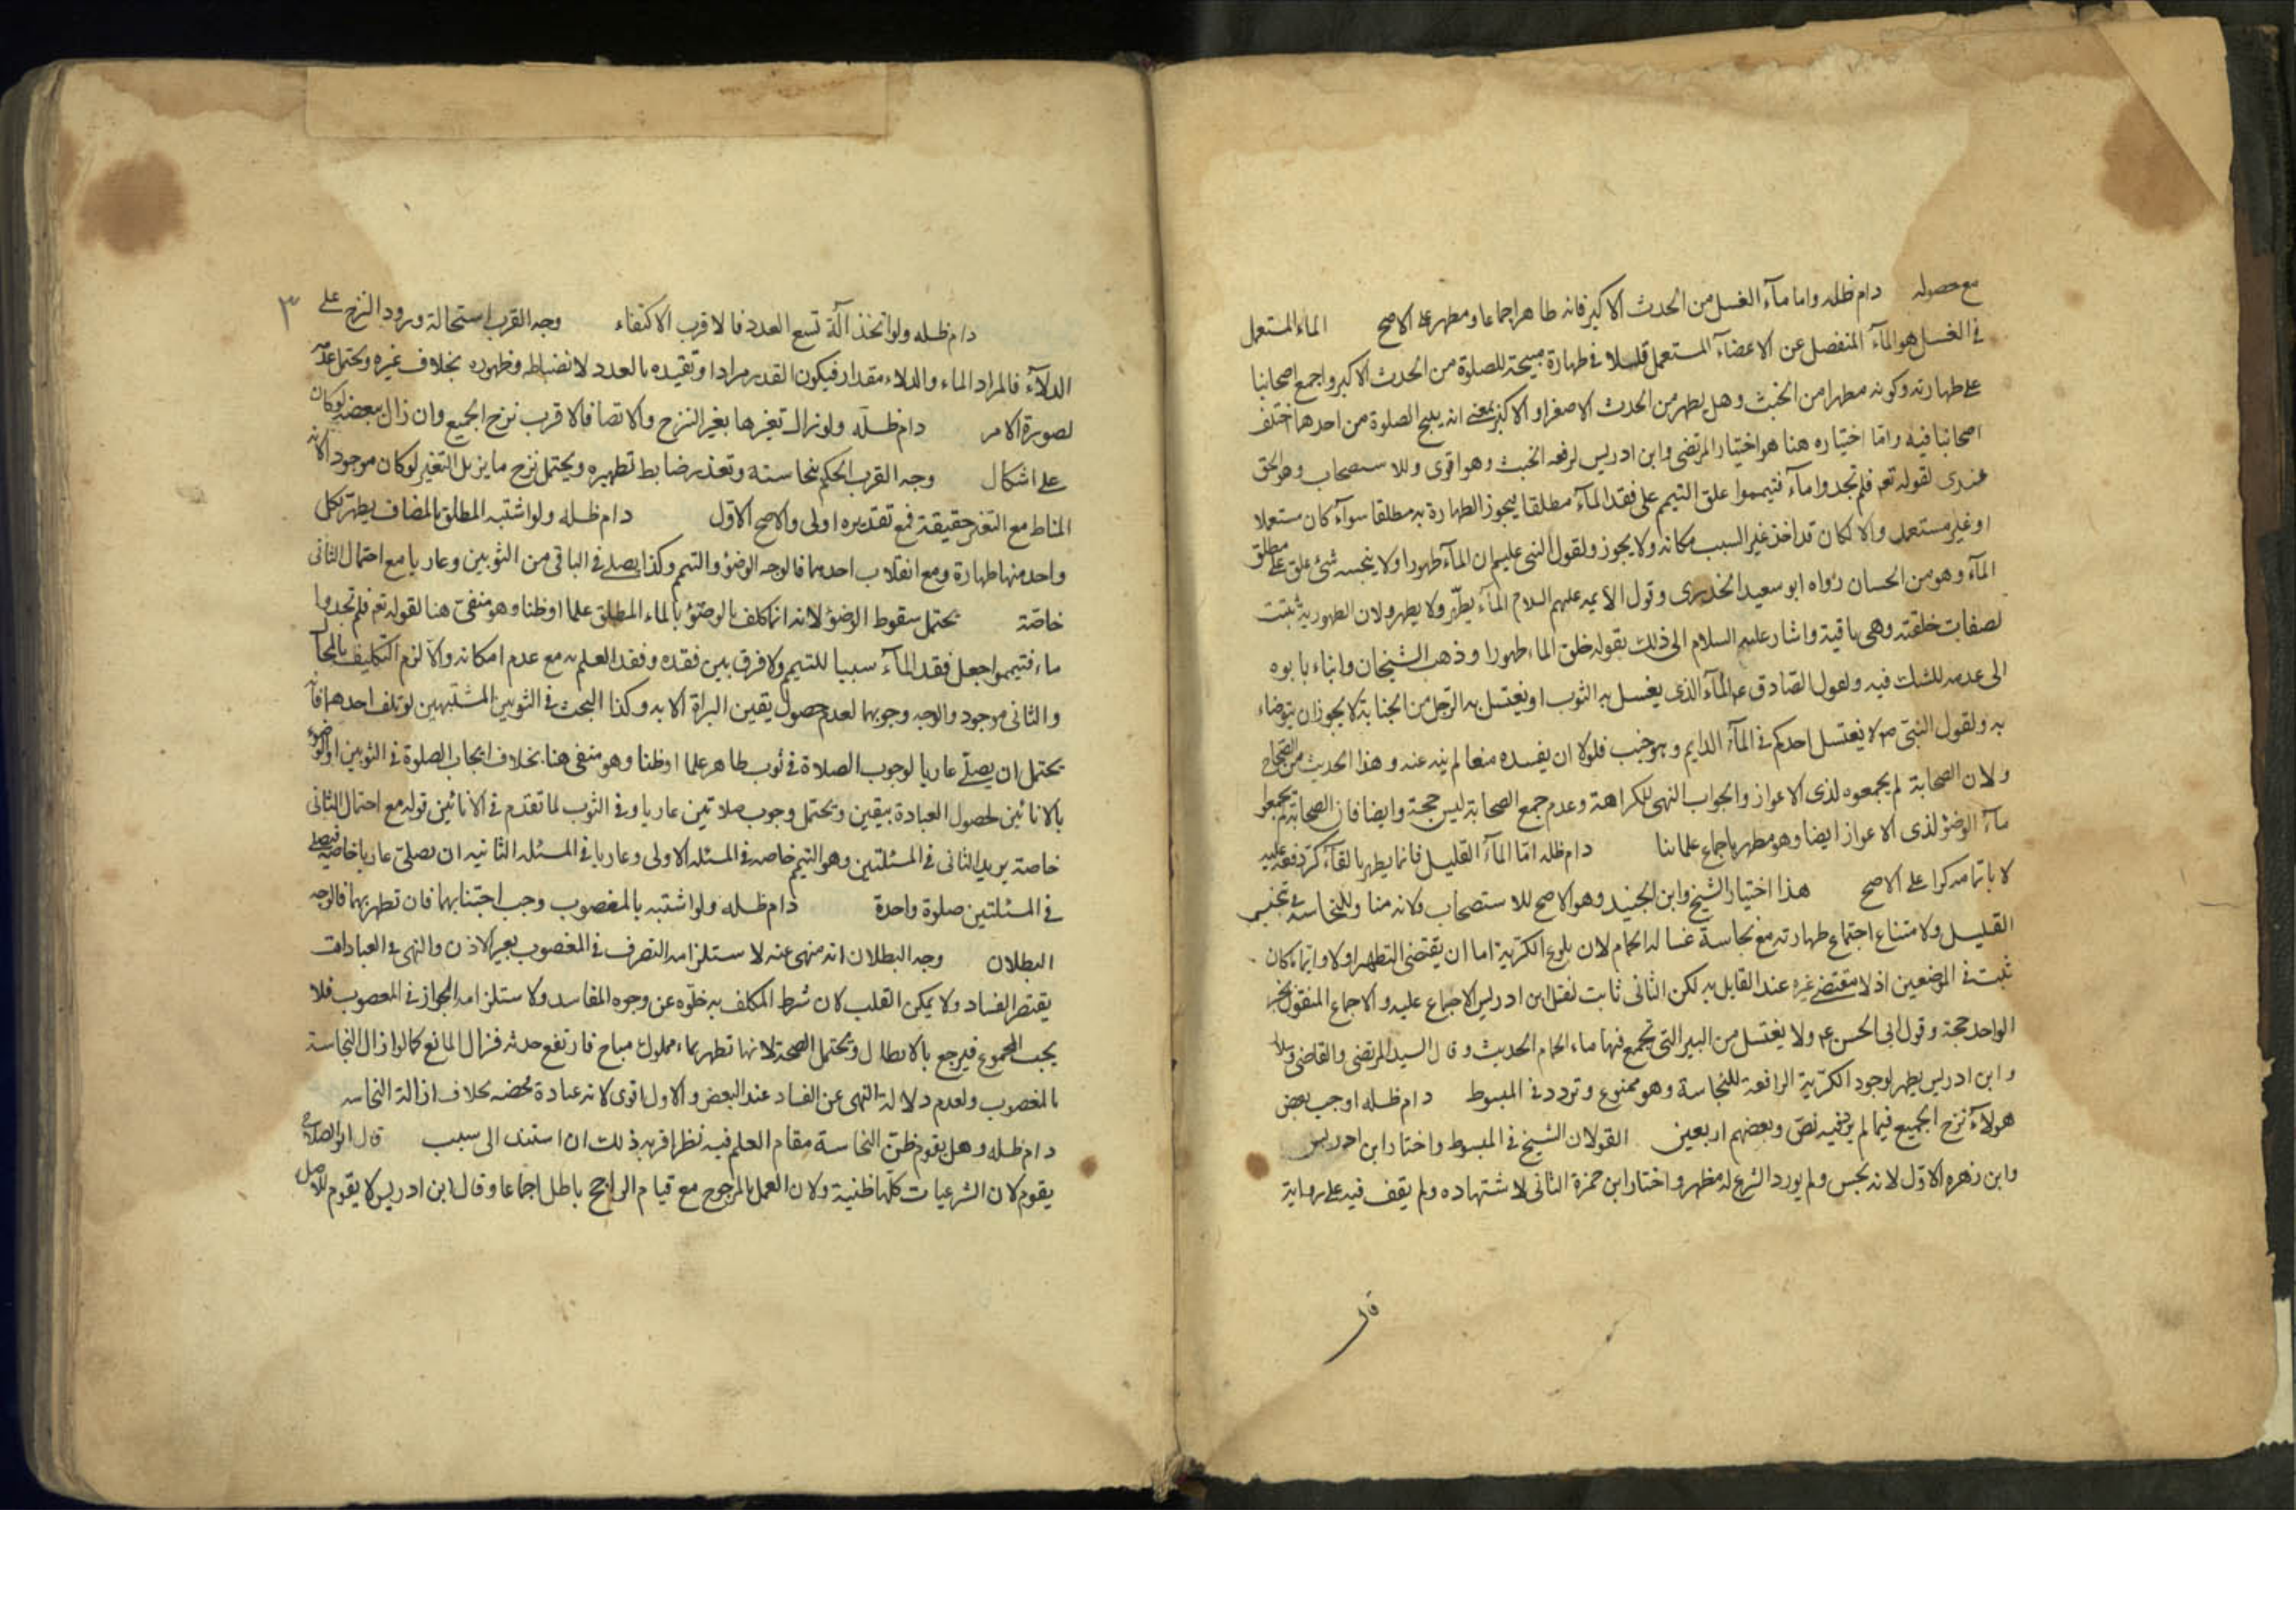 مع حصوله دام ظله واما مآء الغسل من الحدث الاكبر فانه طاهر اجماعا ومطهر على الاصح الماء المستعمل
فى الغسل هو المآء المنفصل عن الاعضآء المستعمل قليلا فى طهارة مبيحة للصلوة من الحدث الاكبر واجمع اصحابنا
على طهارته وكونه مطهرا من الخبث وهل يطهر من الحدث الاصغر او الاكبر بمعنى انه يبيح الصلوة من احدها اختلف
اصحابنا فيه وامّا اختياره هنا هو اختيار المرتضى وابن ادريس لرفعه الخبث وهو اقوى وللاستصحاب وهو الحق
عندى لقوله تعه فلم تجدوا مآء فتيمموا علق التيمم على فقد المآء مطلقا فيجوز الطهارة به مطلقا سوآء كان مستعملا
او غير مستعمل والا لكان قد اخذ غير السبب مكانه ولا يجوز ولقول النبى عليه ان المآء طهورا ولا ينجسه شئ علق على مطلق
المآء وهو من الحسان رواه ابو سعيد الخدرى وقول الأيمه عليهم السلام المآء يطهّر ولا يطهر ولان الطهورية ثبتت
لصفات خلقته وهى باقية واشار عليه السلام الى ذلك بقوله خلق الماء طهورا وذهب الشيخان وابناء بابوه
الى عدمه للشك فيه ولقول الصّادق عه المآء الذى يغسل به الثوب او يغتسل به الرّجل من الجنابة لا يجوز ان يتوضاء
به ولقول النبىّ ص لا يغتسل احدكم فى المآء الدايم وهو جنب فلولا ان يفسده منعا لم ينه عنه وهذا الحديث من الصّحاح
ولان الصحابة لم يجمعوه لذى الاعواز والجواب النهى للكراهة وعدم جمع الصحابة ليس حجة وايضا فان الصحابة لم يجمعوا
مآء الوضوْ لذى الاعواز ايضا وهو مطهر باجماع علمائنا دام ظله امّا المآء القليل فانما يطهر بالقآء كرّ دفعه عليه
لا باتمامه كرا على الاصح هذا اختيار الشيخ وابن الجنيد وهو الاصح للاستصحاب ولانه منا وللنجاسة فى تنجيس
القليل ولامتناع اجتماع طهارته مع نجاسة غسالة الحمام لان بلوغ الكرّية اما ان يقتضى التطهير اولا وايّما كان
ثبت فى الموضعين اذ لا مقتضى غيره عند القايل به لكن الثانى ثابت لنقل ابن ادريس الاجماع عليه والاجماع المنقول بخبر
الواحد حجة وقول ابى الحسن عه ولا يغتسل من البير التى تجمع فيها ماء الحمام الحديث وقال السيد المرتضى والقاضى وسلار
وابن ادريس يطهر لوجود الكرّية الرافعة للنجاسة وهو ممنوع وتردد فى المبسوط دام ظله اوجب بعض
هولآء نزح الجميع فيما لم يرد فيه نصّ وبعضهم اربعين القولان الشيخ فى المبسوط واختار ابن ادريس
وابن زهره الاوّل لانه نجس ولم يورد الشرع له مطهر واختار ابن حمزة الثانى لاشتهاده ولم يقف فيه على رواية
قال
٣
دام ظله ولو اتخذ آلة تسع العدد فالاقرب الاكتفاء وجه القرب استحالة ورود النزح على
الدلآء فالمراد الماء والدلاء مقدار فيكون القدر مرادا وتقيده بالعدد لانضباطه وظهوره بخلاف غيره ويحتمل عدمه
لصورة الامر دام ظلّه ولو زال تغيرها بغير النزح والاتصال فالاقرب نزح الجميع وان زال ببعضه لو كان
على اشكال وجه القرب الحكم بنجاسته وتعذر ضابط تطهيره ويحتمل نزح ما يزيل التغير لو كان موجود الانه
المناط مع التغير حقيقة فمع تقديره اولى والاصح الاوّل دام ظله ولو اشتبه المطلق بالمضاف يطهر بكل
واحد منها طهارة ومع انقلاب احديهما فالوجه الوضؤ والتيمم وكذا يصلى فى الباقى من الثوبين وعاريا مع احتمال الثانى
خاصّة يحتمل سقوط الوضؤ لانه انما كلف بالوضؤ بالماء المطلق علما اوظنا وهو منفىّ هنا لقوله تعه فلم تجدوا
ماء فتيمموا جعل فقد المآء سببا للتيمم ولا فرق بين فقده وفقد العلم به مع عدم امكانه والّا لزم التكليف بالمحال
والثانى موجود والوجه وجوبهما لعدم حصول يقين البراة الا به وكذا البحث فى الثوبين المشتبهين لو تلف احدهما فانه
يحتمل ان يصلّى عاريا لوجوب الصلاة فى ثوب طاهر علما اوظنا وهو منفى هنا بخلاف ايجاب الصلوة فى الثوبين او الوضوء
بالانائين لحصول العبادة بيقين ويحتمل وجوب صلاتين عاريا وفى الثوب لما تقدم فى الانائين قوله مع احتمال الثانى
خاصة يريد الثانى فى المسئلتين وهو التيمم خاصه فى المسئله الاولى وعاريا فى المسئله الثانيه ان يصلّى عاريا خاصّه فيصلى
فى المسئلتين صلوة واحدة دام ظله ولو اشتبه بالمغصوب وجب اجتنابهما فان تطهر بهما فالوجه
البطلان وجه البطلان انه منهى عنه لاستلزامه التصرف فى المغصوب بغير الاذن والنهى فى العبادات
يقتضى الفساد ولا يمكن القلب لان شرط المكلف به خلوّه عن وجوه المفاسد ولاستلزامه الجواز فى المغصوب فلا
يجب المجموع فيرجع بالابطال ويحتمل الصحة لانها تطهر بماء مملوك مباح فارتفع حدثه فزال المانع كما لو ازال النجاسة
بالمغصوب ولعدم دلالة النهى عن الفساد عند البعض والاول اقوى لانه عبادة محضه بخلاف ازالة النجاسه
دام ظله وهل يقوم ظنّ النجاسة مقام العلم فيه نظر اقربه ذلك ان استند الى سبب قال ابو الصلاح
يقوم لان الشرعيات كلّها ظنية ولان العمل بالمرجوح مع قيام الراجح باطل اجماعا وقال ابن ادريس لا يقوم للاصل